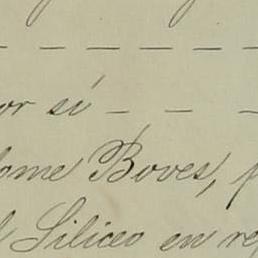 or sí
lome Boves,
l Siliceo en re